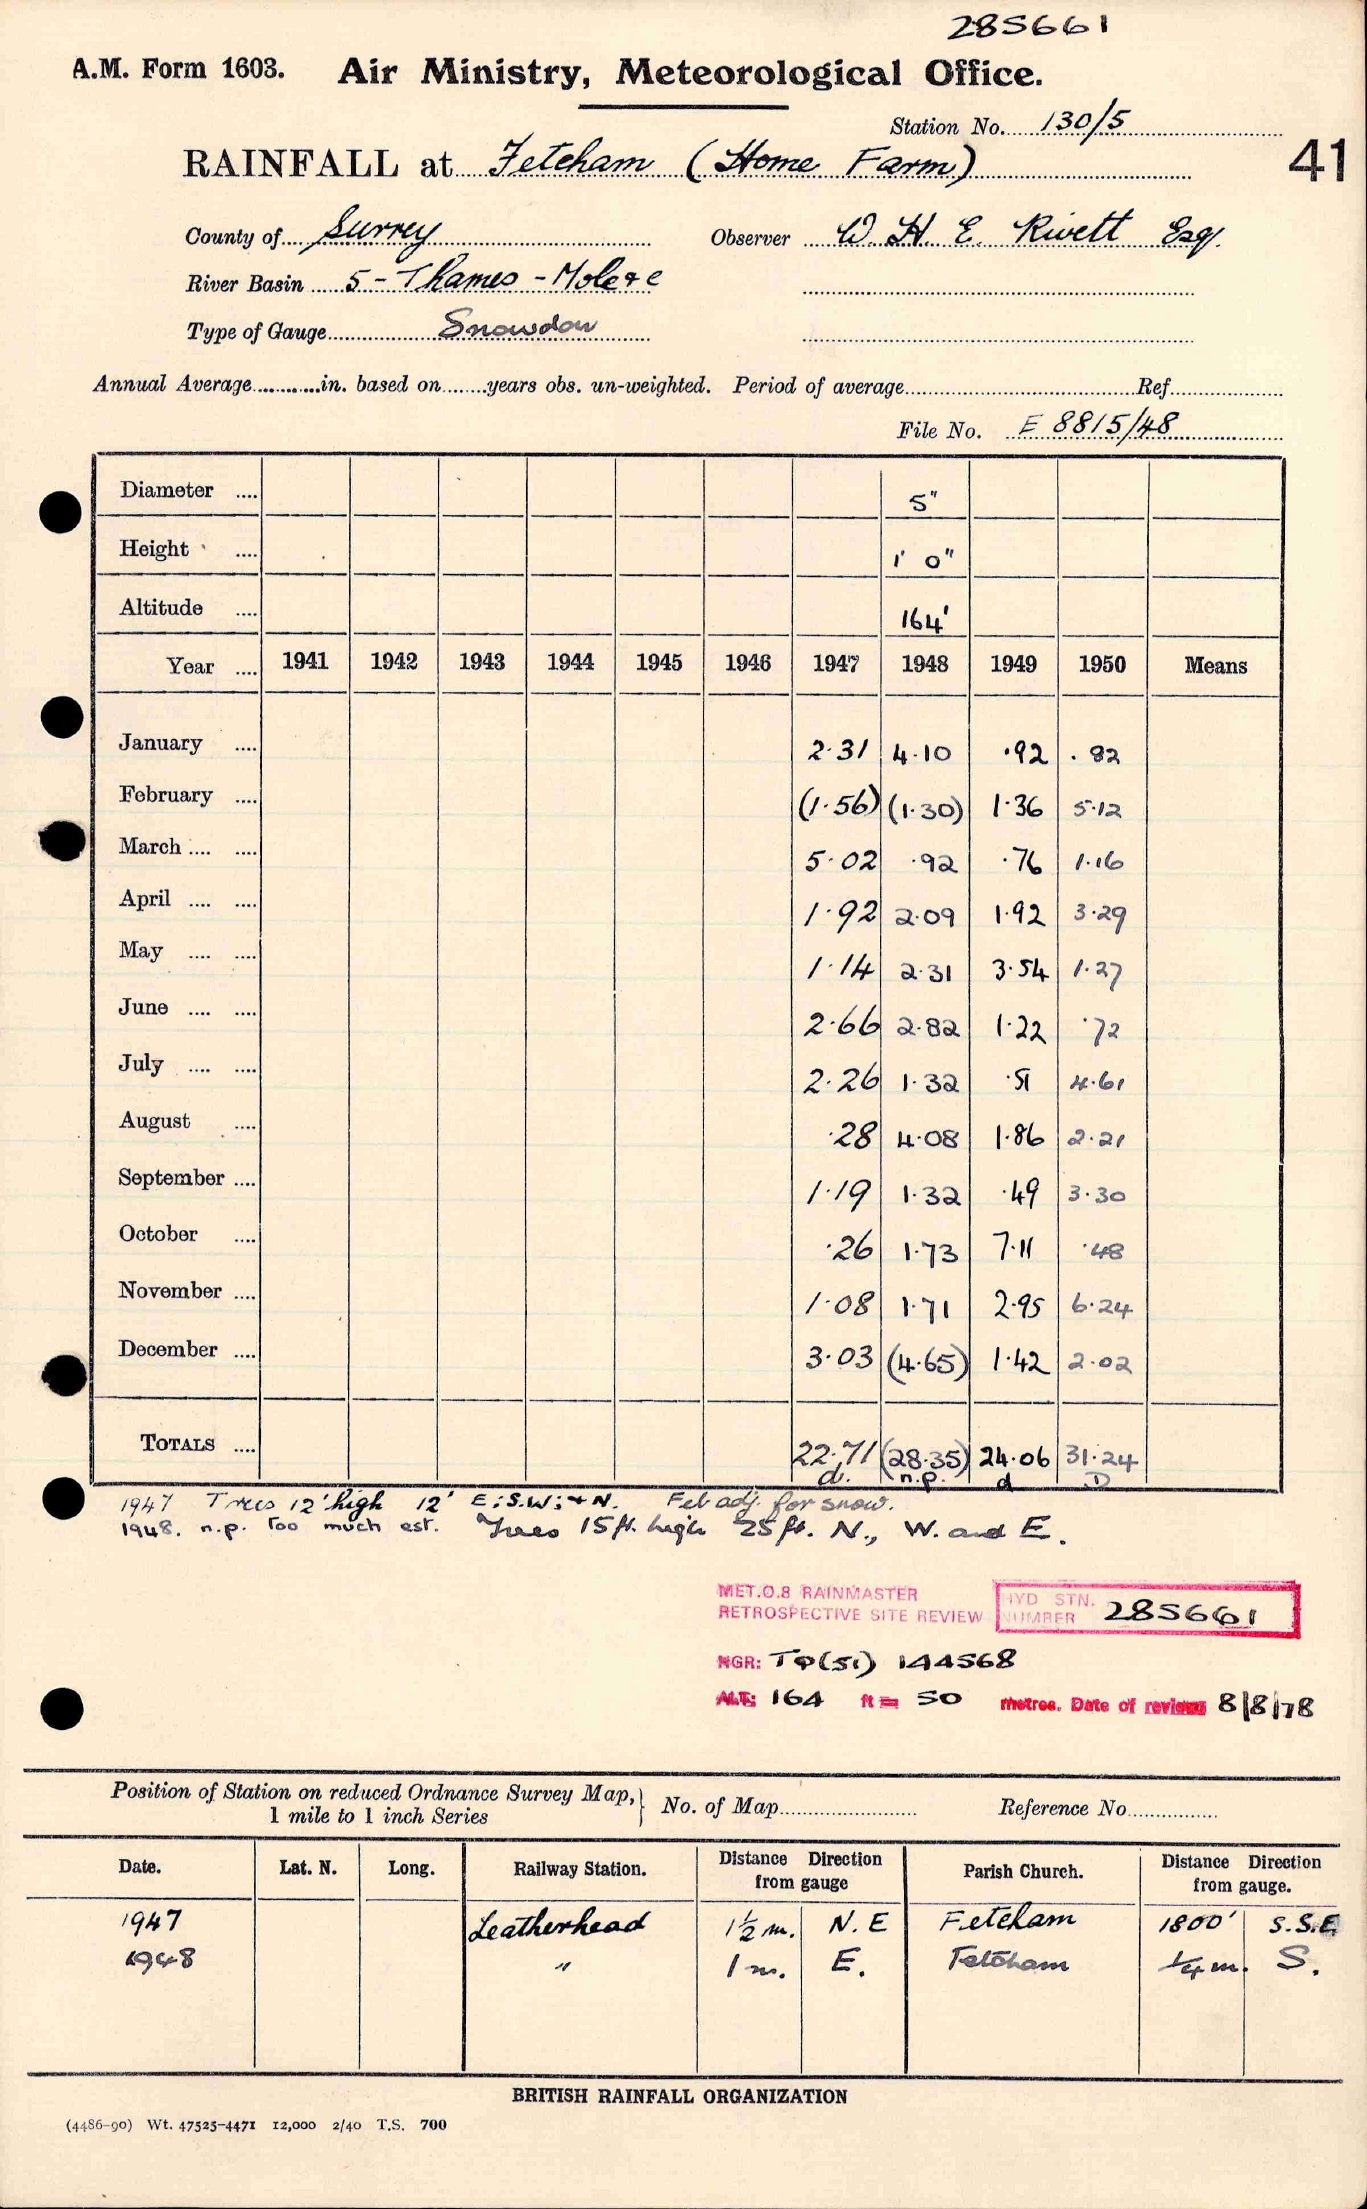 285661
A.M. Form 1603. Air Ministry, Meteorological Office.
Station No. 130/5
41
RAINFALL at Fetcham (Home Farm)
County of Surrey Observer W. H. E. Rivett Esq.
River Basin 5 - Thames - Mole & c
Type of Gauge Snowdon
Annual Average in. based on years obs. un-weighted. Period of average Ref.
File No. E 8815/48
Diameter .... 5"
Height .... 1' 0"
Altitude .... 164'
Year .... 1941 1942 1943 1944 1945 1946 1947 1948 1949 1950 Means
January .... 2.31 4.10 .92 .82
February .... (1.56) (1.30) 1.36 5.12
March .... .... 5.02 .92 .76 1.16
April .... .... 1.92 2.09 1.92 3.29
May .... .... 1.14 2.31 3.54 1.27
June .... .... 2.66 2.82 1.22 .72
July .... .... 2.26 1.32 .51 4.61
August .... .28 4.08 1.86 2.21
September .... 1.19 1.32 .49 3.30
October .... .26 1.73 7.11 .48
November .... 1.08 1.71 2.95 6.24
December .... 3.03 (4.65) 1.42 2.02
TOTALS .... 22.71 (28.35) 24.06 31.24
d. n.p. d D
1947 Trees 12' high 12' E; S.W; + N. Feb adj. for snow.
1948. n.p. Too much est. Trees 15 ft. high 25 ft. N., W. and E.
MET.O.8 RAINMASTER
RETROSPECTIVE SITE REVIEW
HYD STN. NUMBER 285661
NGR: TQ(51) 144568
ALT: 164 ft = 50 metres. Date of review 8/8/78
Position of Station on reduced Ordnance Survey Map, 1 mile to 1 inch Series } No. of Map Reference No.
Date. Lat. N. Long. Railway Station. Distance Direction from gauge Parish Church. Distance Direction from gauge.
1947 Leatherhead 1½ m. N. E Fetcham 1800' S.S.E
1948 " 1 m. E. Fetcham ¼ m. S.
BRITISH RAINFALL ORGANIZATION
(4486-90) Wt. 47525-4471 12,000 2/40 T.S. 700